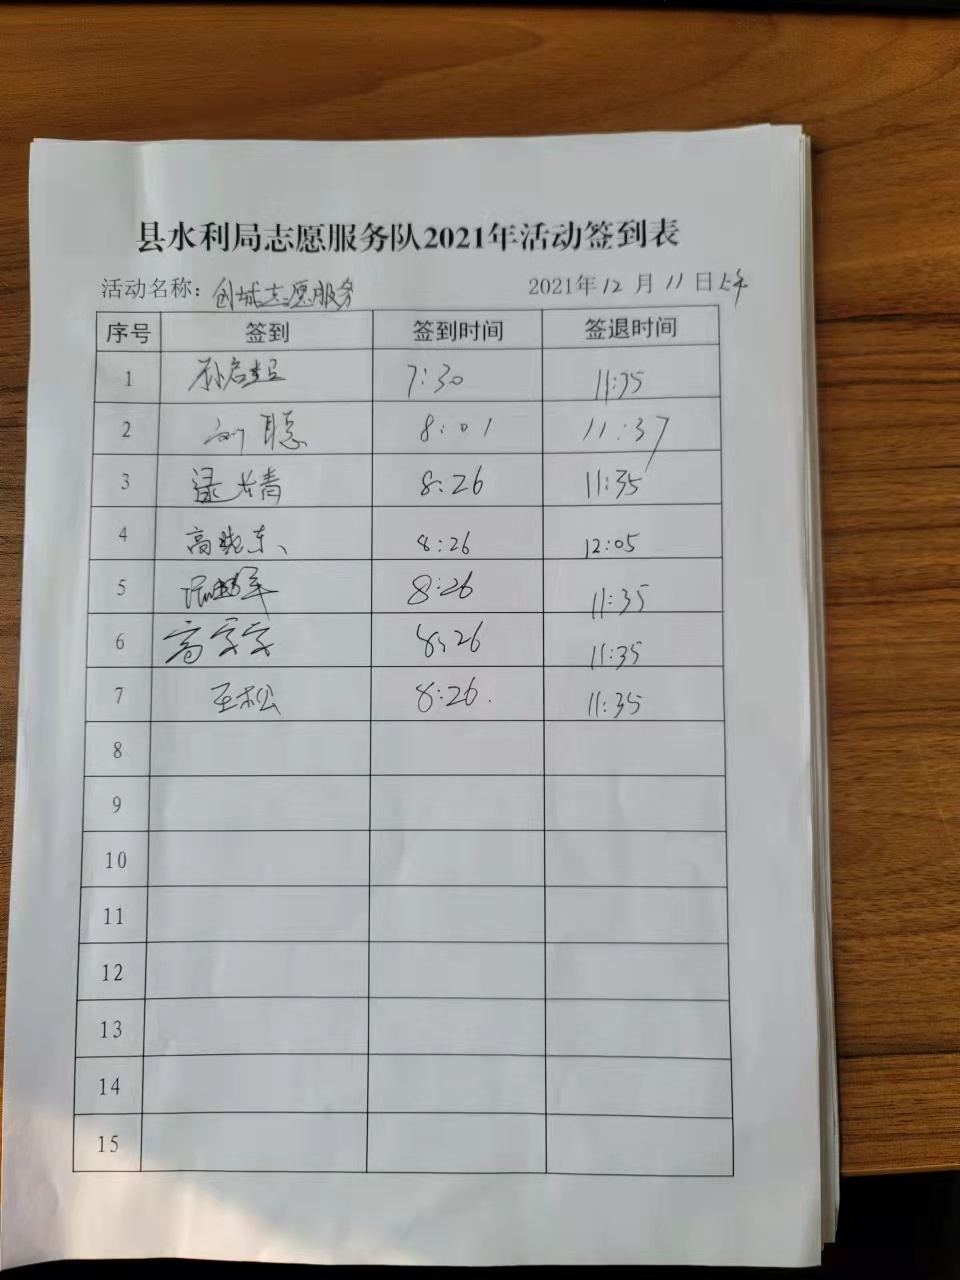 县水利局志愿服务队2021年活动签到表
活动名称：创城志愿服务 2021年12月11日上午
序号 签到 签到时间 签退时间
1 7:30 11:35
2 刘聪 8:01 11:37
3 8:26 11:35
4 高晓东 8:26 12:05
5 8:26 11:35
6 高 8:26 11:35
7 王松 8:26 11:35
8
9
10
11
12
13
14
15